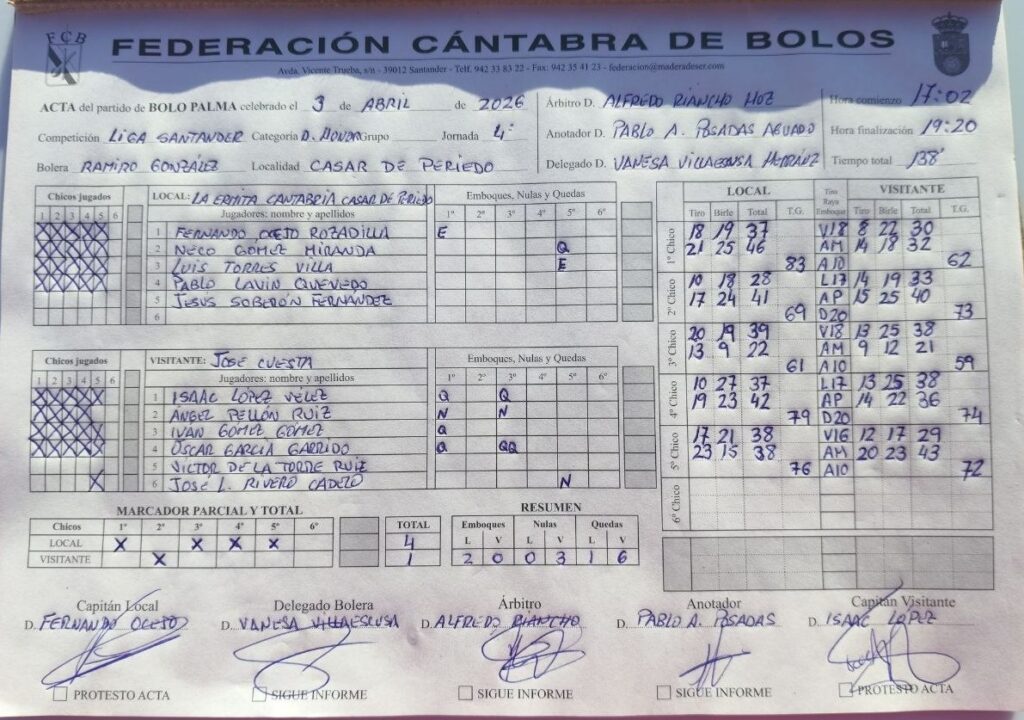 FCB
FEDERACIÓN CÁNTABRA DE BOLOS
Avda. Vicente Trueba, s/n - 39012 Santander - Telf. 942 33 83 22 - Fax: 942 35 41 23 - federacion@maderadeser.com
ACTA del partido de BOLO PALMA celebrado el 3 de ABRIL de 2026
Competición LIGA SANTANDER Categoría D. HONOR Grupo Jornada 4ª
Bolera RAMIRO GONZÁLEZ Localidad CASAR DE PERIEDO
Árbitro D. ALFREDO RIANCHO HOZ
Anotador D. PABLO A. POSADAS AGUADO
Delegado D. VANESA VILLAESCUSA
Hora comienzo 17:02
Hora finalización 19:20
Tiempo total 138'
Chicos jugados
1 2 3 4 5 6
LOCAL: LA ERMITA CANTABRIA CASAR DE PERIEDO
Jugadores: nombre y apellidos
Emboques, Nulas y Quedas
1º 2º 3º 4º 5º 6º
1 FERNANDO OCEJO ROZADILLA E
2 NECO GOMEZ MIRANDA Q
3 LUIS TORRES VILLA E
4 PABLO LAVIN QUEVEDO
5 JESUS SOBERÓN FERNÁNDEZ
6
Chicos jugados
1 2 3 4 5 6
VISITANTE: JOSE CUESTA
Jugadores: nombre y apellidos
Emboques, Nulas y Quedas
1º 2º 3º 4º 5º 6º
1 ISAAC LOPEZ VÉLEZ Q Q
2 ANGEL PELLÓN RUIZ N N
3 IVAN GOMEZ GOMEZ Q
4 OSCAR GARCIA GARRIDO Q QQ
5 VICTOR DE LA TORRE RUIZ
6 JOSE L. RIVERO CADELO N
LOCAL Tiro Raya Emboque VISITANTE
Tiro Birle Total T.G. Tiro Birle Total T.G.
1º Chico
18 19 37 V18 8 22 30
21 25 46 AM 14 18 32
83 A10 62
2º Chico
10 18 28 L17 14 19 33
17 24 41 AP 15 25 40
69 D20 73
3º Chico
20 19 39 V18 13 25 38
13 9 22 AM 9 12 21
61 A10 59
4º Chico
10 27 37 L17 13 25 38
19 23 42 AP 14 22 36
79 D20 74
5º Chico
17 21 38 V16 12 17 29
23 15 38 AM 20 23 43
76 A10 72
6º Chico
MARCADOR PARCIAL Y TOTAL
Chicos 1º 2º 3º 4º 5º 6º TOTAL
LOCAL X X X X 4
VISITANTE X 1
RESUMEN
Emboques Nulas Quedas
L V L V L V
2 0 0 3 1 6
Capitán Local Delegado Bolera Árbitro Anotador Capitán Visitante
D. FERNANDO OCEJO D. VANESA VILLAESCUSA D. ALFREDO RIANCHO D. PABLO A. POSADAS D. ISAAC LÓPEZ
PROTESTO ACTA SIGUE INFORME SIGUE INFORME SIGUE INFORME PROTESTO ACTA